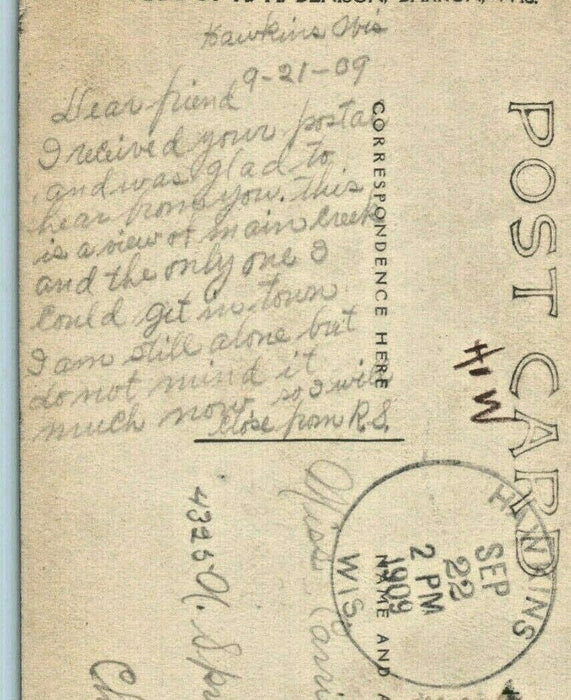 DENISON, BARRON, WIS.
Hawkins Wis
9-21-09
Dear friend
I received your postal
and was glad to
hear from you. this
is a view of main Creek
and the only one I
could get in town
I am still alone but
do not mind it
much now so I will
close from R.S.
CORRESPONDENCE HERE
POST CARD
H W
HAWKINS
SEP
22
2 PM
1909
WIS.
NAME AND A
Miss
4325 N. Spr
Ch